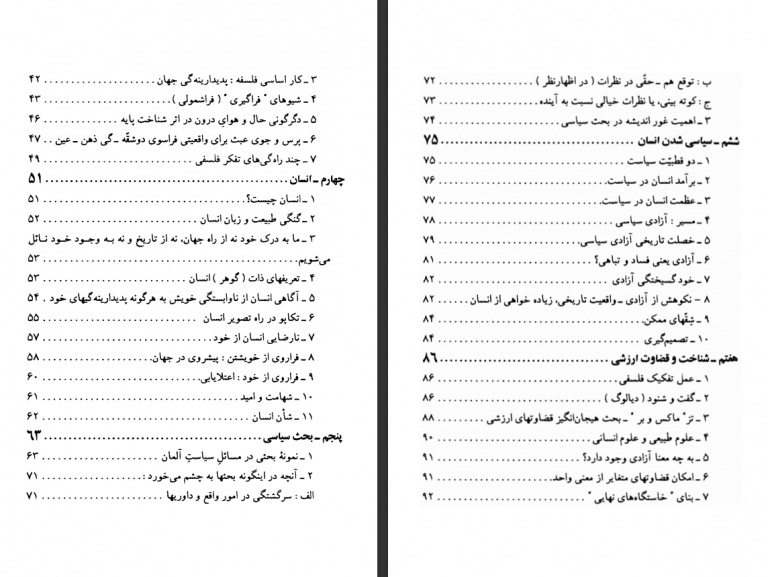 ۳ ـ کار اساسی فلسفه : پدیدارینه‌گی جهان . . . . . . . . . . . . . . . . . . . . ۴۲
۴ ـ شیوهای " فراگیری " ( فراشمولی ) . . . . . . . . . . . . . . . . . . . . ۴۳
۵ ـ دگرگونی حال و هوایِ درون در اثر شناخت پایه . . . . . . . . . . ۴۶
۶ ـ پرس و جوی عبث برای واقعیتی فراسوی دوشقّه ـ گی ذهن ـ عین . . ۴۷
۷ ـ چند راه‌گی‌های تفکر فلسفی . . . . . . . . . . . . . . . . . . . . ۴۹
چهارم ـ انسان . . . . . . . . . . . . . . . . . . . . ۵۱
۱ ـ انسان چیست؟ . . . . . . . . . . . . . . . . . . . . ۵۱
۲ ـ گنگی طبیعت و زبان انسان . . . . . . . . . . . . . . . . . . . . ۵۲
۳ ـ ما به درک خود نه از راه جهان، نه از تاریخ و نه به وجود خود نائل
می‌شویم . . . . . . . . . . . . . . . . . . . . ۵۳
۴ ـ تعریفهای ذات ( گوهر ) انسان . . . . . . . . . . . . . . . . . . . . ۵۳
۵ ـ آگاهی انسان از ناوابستگی خویش به هرگونه پدیدارینه‌گیهای خود . ۵۴
۶ ـ تکاپو در راه تصویر انسان . . . . . . . . . . . . . . . . . . . . ۵۵
۷ ـ نارضایی انسان از خود . . . . . . . . . . . . . . . . . . . . ۵۷
۸ ـ فراروی از خویشتن : پیشروی در جهان . . . . . . . . . . . . . . . ۵۸
۹ ـ فراروی از خود : اعتلایابی . . . . . . . . . . . . . . . . . . . . ۶۰
۱۰ ـ شهامت و امید . . . . . . . . . . . . . . . . . . . . ۶۱
۱۱ ـ شأن انسان . . . . . . . . . . . . . . . . . . . . ۶۲
پنجم ـ بحث سیاسی . . . . . . . . . . . . . . . . . . . . ۶۳
۱ ـ نمونهٔ بحثی در مسائلِ سیاستِ آلمان . . . . . . . . . . . . . . . ۶۳
۲ ـ آنچه در اینگونه بحثها به چشم می‌خورد : . . . . . . . . . . . . . ۷۱
الف : سرگشتگی در امور واقع و داوریها . . . . . . . . . . . . . . . ۷۱
ب : توقع هم ـ حقّی در نظرات ( در اظهارنظر ) . . . . . . . . . . . . . ۷۲
ج : کوته بینی، یا نظرات خیالی نسبت به آینده . . . . . . . . . . . . . ۷۳
۳ ـ اهمیت غور اندیشه در بحث سیاسی . . . . . . . . . . . . . . . ۷۴
ششم ـ سیاسی شدن انسان . . . . . . . . . . . . . . . . . . . . ۷۵
۱ ـ دو قطبیّت سیاست . . . . . . . . . . . . . . . . . . . . ۷۵
۲ ـ برآمد انسان در سیاست . . . . . . . . . . . . . . . . . . . . ۷۶
۳ ـ عظمت انسان در سیاست . . . . . . . . . . . . . . . . . . . . ۷۷
۴ ـ مسیر : آزادی سیاسی . . . . . . . . . . . . . . . . . . . . ۷۸
۵ ـ خصلت تاریخی آزادی سیاسی . . . . . . . . . . . . . . . . . . . . ۷۹
۶ ـ آزادی یعنی فساد و تباهی؟ . . . . . . . . . . . . . . . . . . . . ۸۱
۷ ـ خود گسیختگی آزادی . . . . . . . . . . . . . . . . . . . . ۸۲
۸ - نکوهش از آزادی ـ واقعیت تاریخی، زیاده خواهی از انسان . . . . . . ۸۲
۹ ـ شِقّهای ممکن . . . . . . . . . . . . . . . . . . . . ۸۴
۱۰ ـ تصمیم‌گیری . . . . . . . . . . . . . . . . . . . . ۸۴
هفتم ـ شناخت و قضاوت ارزشی . . . . . . . . . . . . . . . . . . . . ۸۶
۱ ـ عمل تفکیک فلسفی . . . . . . . . . . . . . . . . . . . . ۸۶
۲ ـ گفت و شنود ( دیالوگ ) . . . . . . . . . . . . . . . . . . . . ۸۶
۳ ـ تز " ماکس و بر " ـ بحث هیجان‌انگیز قضاوتهای ارزشی . . . . . . . ۸۸
۴ ـ علوم طبیعی و علوم انسانی . . . . . . . . . . . . . . . . . . . . ۹۰
۵ ـ به چه معنا آزادی وجود دارد؟ . . . . . . . . . . . . . . . . . . . . ۹۱
۶ ـ امکان قضاوتهای متغایر از معنی واحد . . . . . . . . . . . . . . . ۹۱
۷ ـ بنای " خاستگاه‌های نهایی " . . . . . . . . . . . . . . . . . . . . ۹۲